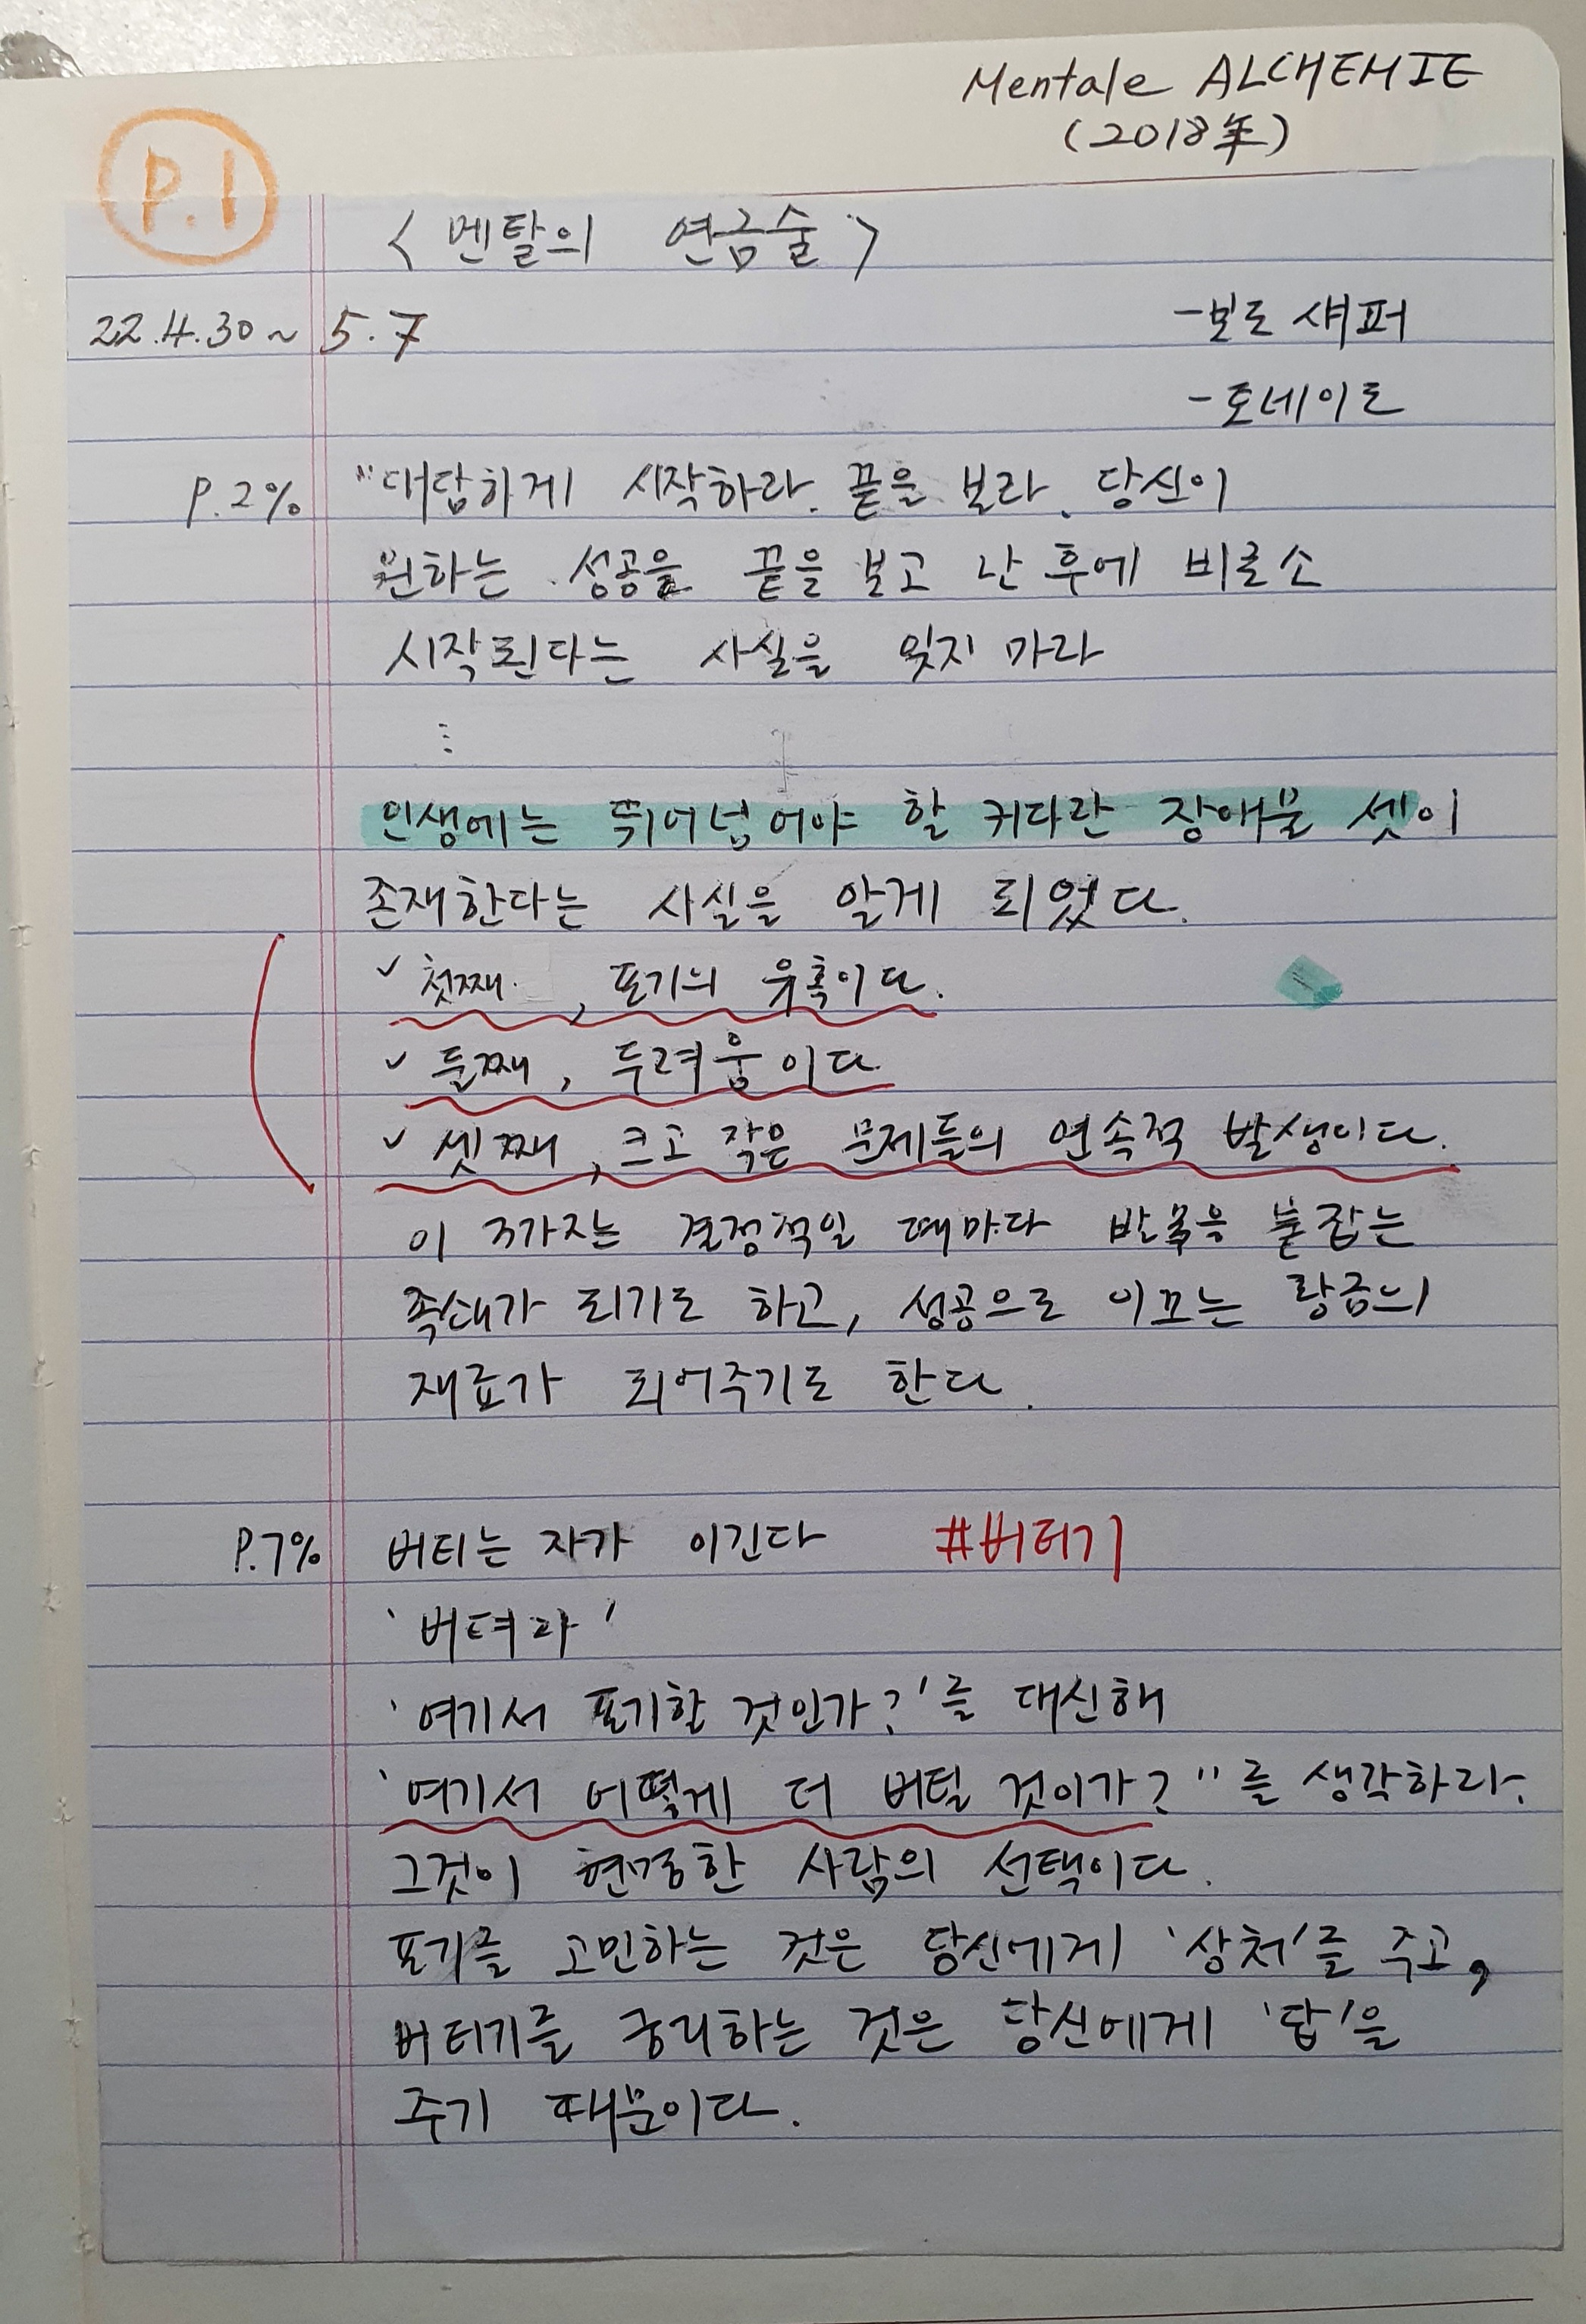 Mentale ALCHEMIE
(2018年)
P.1
<멘탈의 연금술>
22.4.30~ 5.7
-보도 섀퍼
-토네이도
P.2% "대답하게 시작하라. 끝을 보라. 당신이
원하는 성공을 끝을 보고 난 후에 비로소
시작된다는 사실을 잊지 마라
⋮
인생에는 뛰어넘어야 할 커다란 장애물 셋이
존재한다는 사실을 알게 되었다.
✓ 첫째, 포기의 유혹이다.
✓ 둘째, 두려움이다.
✓ 셋째, 크고 작은 문제들의 연속적 발생이다.
이 3가지는 결정적일 때마다 발목을 붙잡는
족쇄가 되기도 하고, 성공으로 이끄는 황금의
재료가 되어주기도 한다.
P.7% 버티는 자가 이긴다 #버티기
'버텨라'
'여기서 포기할 것인가?'를 대신해
'여기서 어떻게 더 버틸 것이가?"를 생각하라.
그것이 현명한 사람의 선택이다.
포기를 고민하는 것은 당신에게 '상처'를 주고,
버티기를 궁리하는 것은 당신에게 '답'을
주기 때문이다.